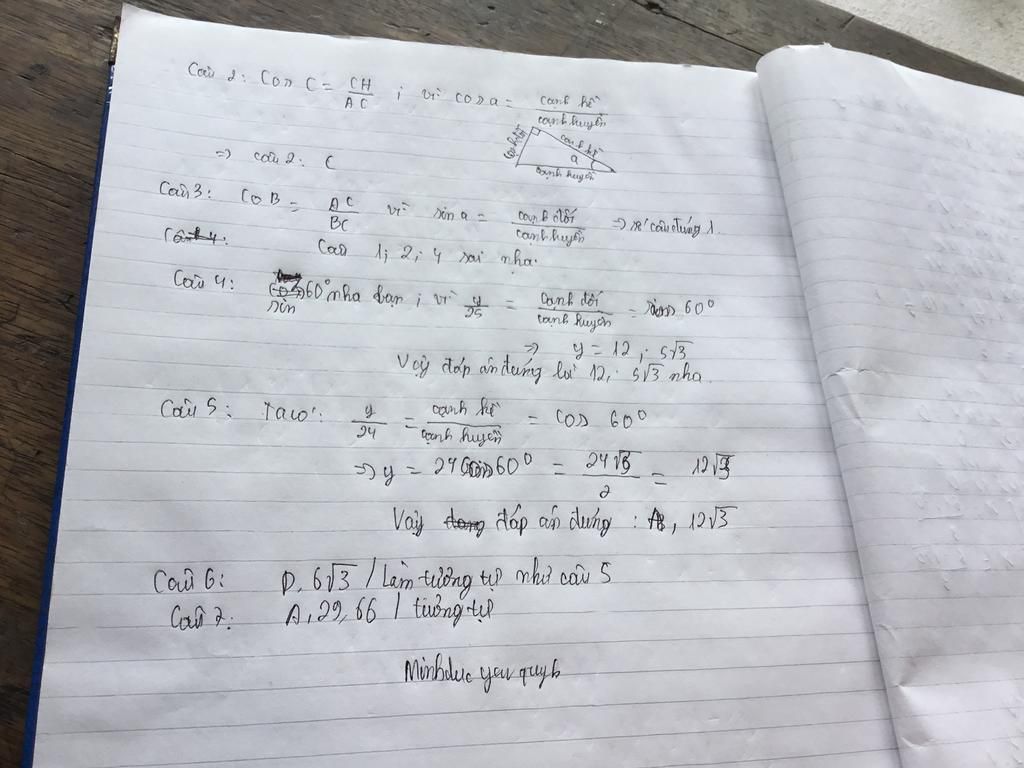 Câu 2: Cos C = CH/AC ; vì cos a = cạnh kề/cạnh huyền
cạnh đối cạnh kề a cạnh huyền
=> câu 2: C
Câu 3: Co B = AC/BC vì sin a = cạnh đối/cạnh huyền => câu đúng 1.
Câu 4: Câu 1; 2; 4 sai nha.
Câu 4: sin 60° nha bạn ; vì y/25 = cạnh đối/cạnh huyền = sin 60°
=> y = 12,5√3
Vậy đáp án đúng là 12,5√3 nha.
Câu 5: Ta có: y/24 = cạnh kề/cạnh huyền = cos 60°
=> y = 24 60° = 24√3/2 = 12√3
Vậy đáp án đúng : A, 12√3
Câu 6: D, 6√3 / Làm tương tự như câu 5
Câu 7: A, 29,66 / tương tự
Minhduc yeu quynh